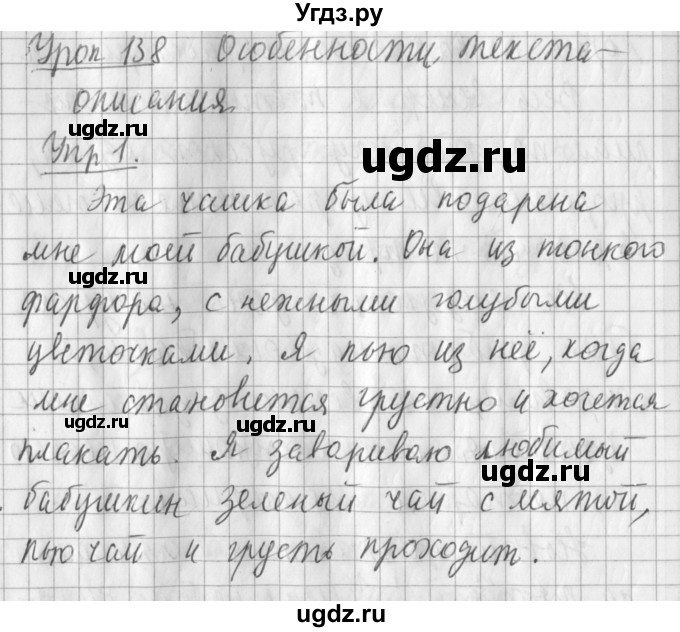 Угдз.ру
Урок 138 Особенности текста-
описания
ugdz.ru
Упр 1.
ugdz.ru
Эта чашка была подарена
мне моей бабушкой. Она из тонкого
ugdz.ru
фарфора, с нежными голубыми
цветочками. Я пью из неё, когда
ugdz.ru
мне становится грустно и хочется
ugdz.ru
плакать. Я завариваю любимый
ugdz.ru
бабушкин зеленый чай с мятой,
пью чай и грусть проходит.
ugdz.ru